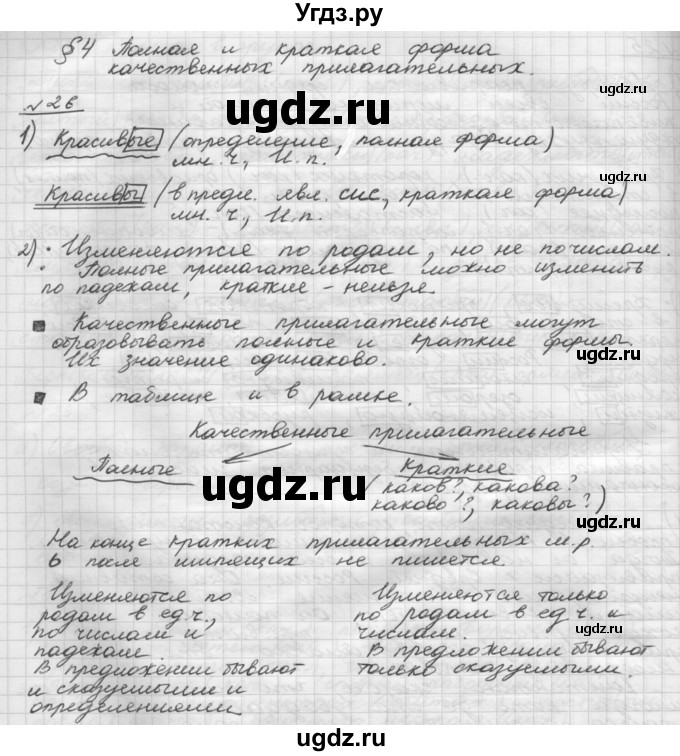 Угдз.ру
§4 Полная и краткая форма
качественных прилагательных.
ugdz.ru
№26
1) Красивые (определение, полная форма)
мн. ч, И.п.
Красивы (в предл. явл. СИС, краткая форма)
мн. ч., И.п.
ugdz.ru
2) • Изменяются по родам, но не по числам.
• Полные прилагательные можно изменить
по падежам, краткие - нельзя.
Качественные прилагательные могут
образовывать полные и краткие формы.
Их значение одинаково.
gdz.ru
В таблице и в рамке.
Качественные прилагательные
Полные Краткие
ugdz.ru
(каков?, какова?
каково?, каковы?)
На конце кратких прилагательных м.р.
ь после шипящих не пишется
gdz.ru
Изменяются по
родам в ед.ч.,
по числам и
падежам.
В предложении бывают
и сказуемыми и
определениями
Изменяются только
по родам в ед ч. и
числам.
В предложении бывают
только сказуемыми.
ugdz.ru
gdz.ru